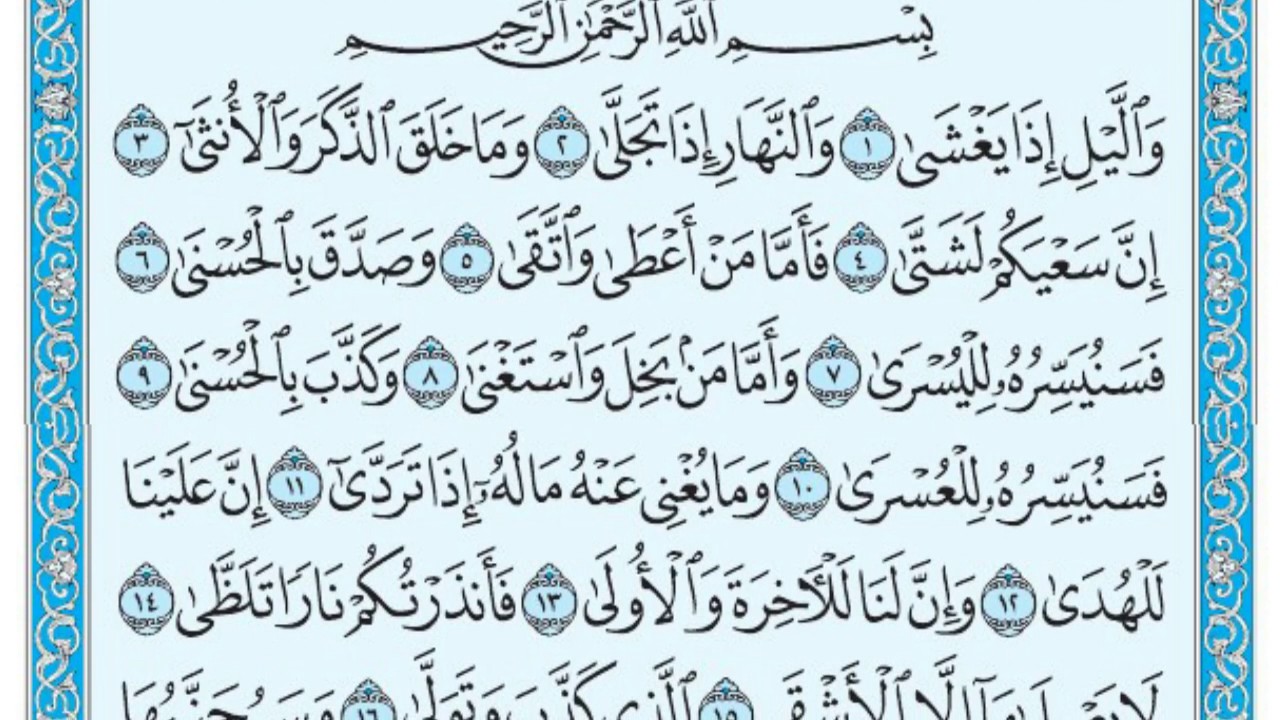 بِسْمِ ٱللَّهِ ٱلرَّحْمَٰنِ ٱلرَّحِيمِ
وَٱلَّيْلِ إِذَا يَغْشَىٰ ١ وَٱلنَّهَارِ إِذَا تَجَلَّىٰ ٢ وَمَا خَلَقَ ٱلذَّكَرَ وَٱلْأُنثَىٰٓ ٣
إِنَّ سَعْيَكُمْ لَشَتَّىٰ ٤ فَأَمَّا مَنْ أَعْطَىٰ وَٱتَّقَىٰ ٥ وَصَدَّقَ بِٱلْحُسْنَىٰ ٦
فَسَنُيَسِّرُهُۥ لِلْيُسْرَىٰ ٧ وَأَمَّا مَنۢ بَخِلَ وَٱسْتَغْنَىٰ ٨ وَكَذَّبَ بِٱلْحُسْنَىٰ ٩
فَسَنُيَسِّرُهُۥ لِلْعُسْرَىٰ ١٠ وَمَا يُغْنِى عَنْهُ مَالُهُۥٓ إِذَا تَرَدَّىٰٓ ١١ إِنَّ عَلَيْنَا
لَلْهُدَىٰ ١٢ وَإِنَّ لَنَا لَلْـَٔاخِرَةَ وَٱلْأُولَىٰ ١٣ فَأَنذَرْتُكُمْ نَارًا تَلَظَّىٰ ١٤
لَا يَصْلَىٰهَآ إِلَّا ٱلْأَشْقَى ١٥ ٱلَّذِى كَذَّبَ وَتَوَلَّىٰ ١٦ وَسَيُجَنَّبُهَا